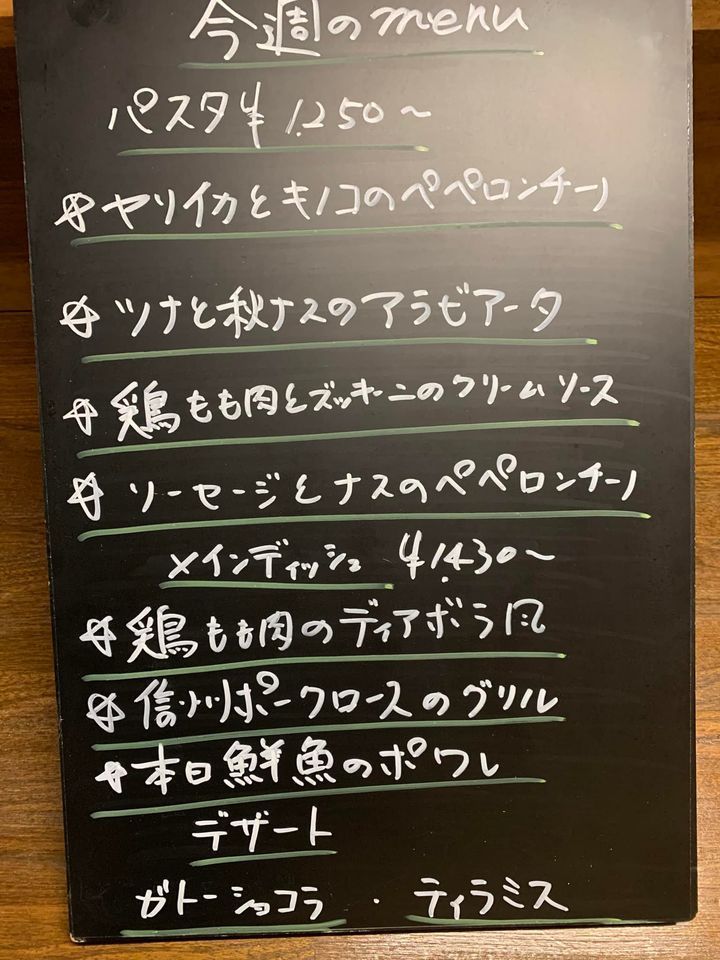 今週のmenu
パスタ¥1,250~
☆ヤリイカとキノコのペペロンチーノ
☆ツナと秋ナスのアラビアータ
☆鶏もも肉とズッキーニのクリームソース
☆ソーセージとナスのペペロンチーノ
メインディッシュ ¥1,430~
☆鶏もも肉のディアボラ風
☆信州ポークロースのグリル
☆本日鮮魚のポワレ
デザート
ガトーショコラ ・ ティラミス